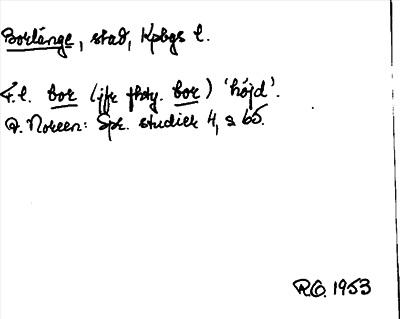 Borlänge, stad, Kpbgs l.
F.l. bor (jfr fhty. bor) 'höjd'.
A. Noreen: Spr. studier 4, s 65.
R.O. 1953